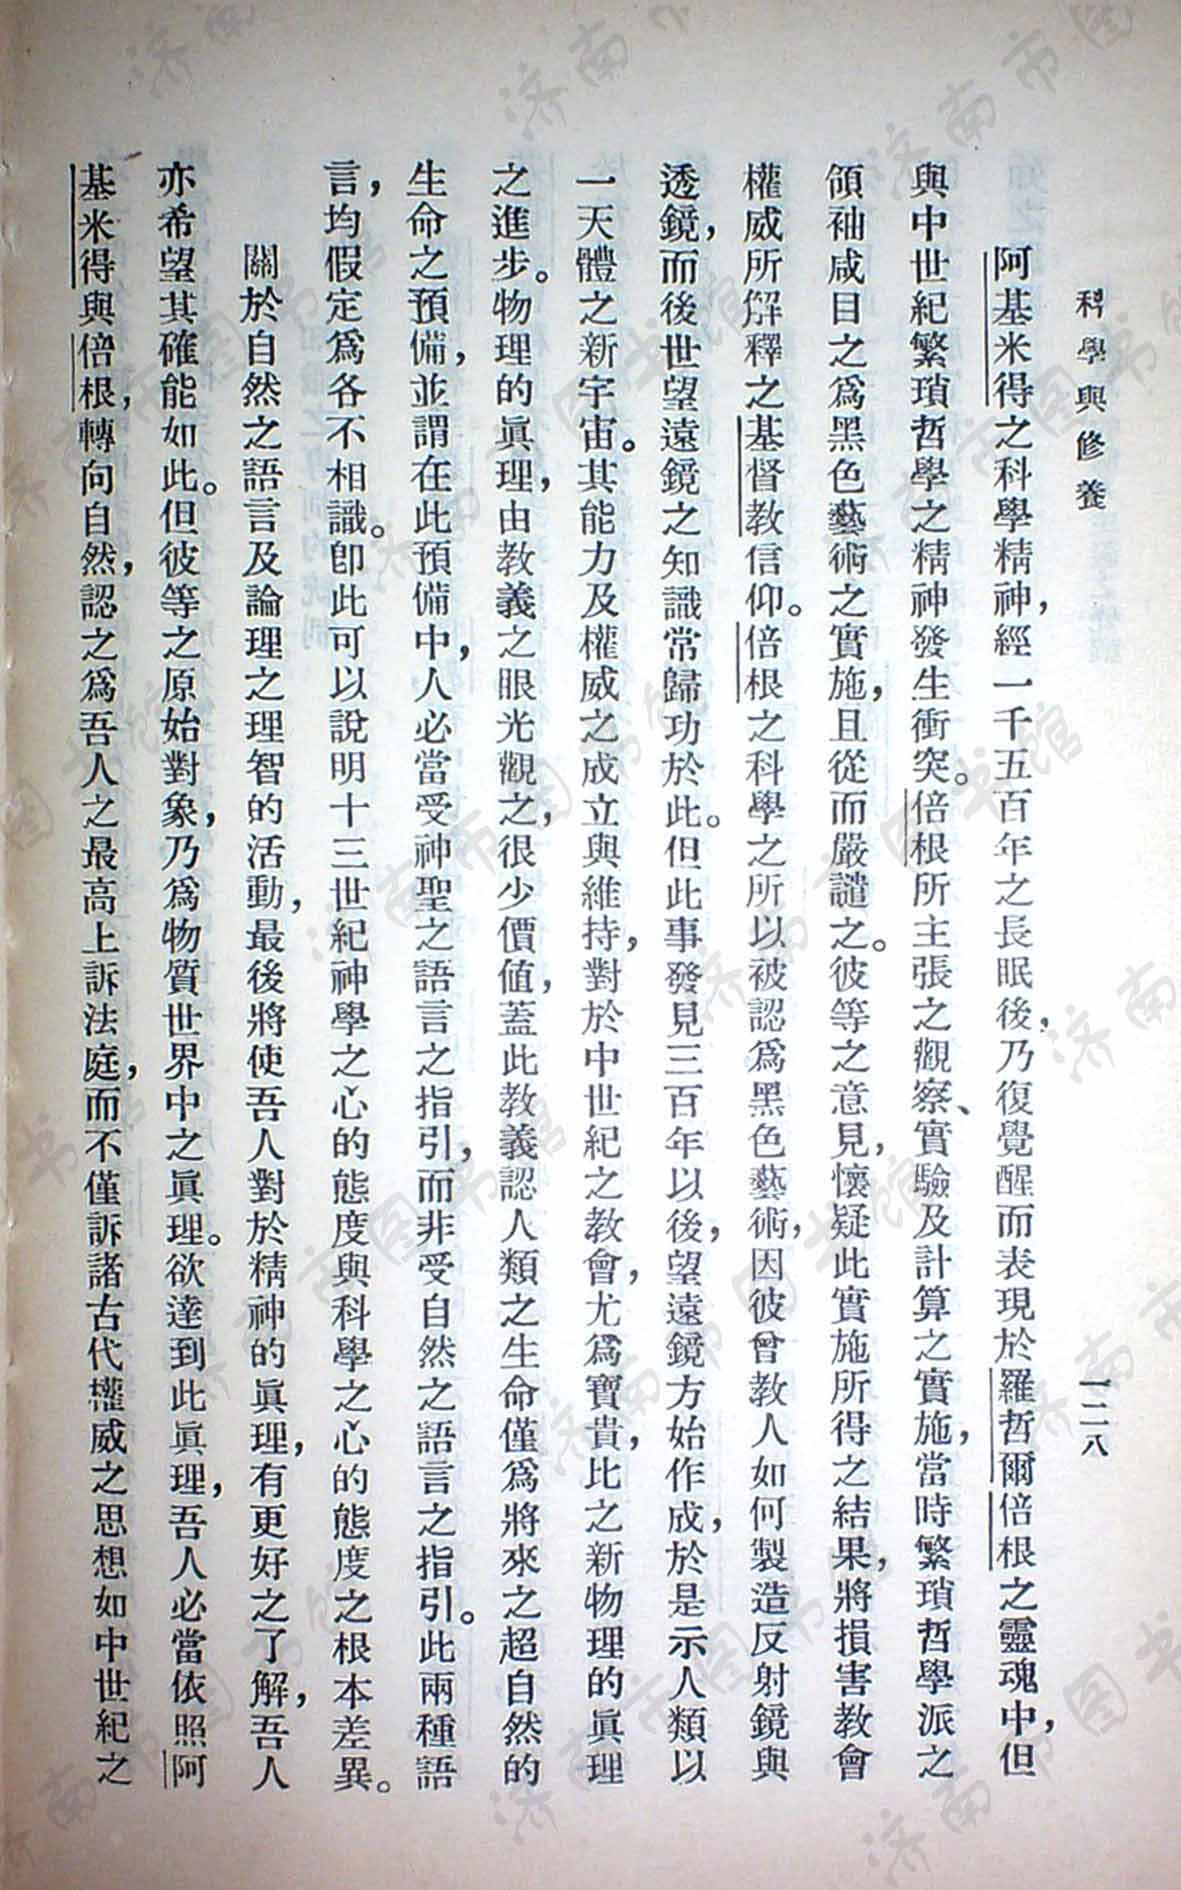 科學與修養
一二八
阿基米得之科學精神，經一千五百年之長眠後，乃復覺醒而表現於羅哲爾倍根之靈魂中，但
與中世紀繁瑣哲學之精神發生衝突。倍根所主張之觀察、實驗及計算之實施，當時繁瑣哲學派之
領袖咸目之爲黑色藝術之實施，且從而嚴譴之。彼等之意見，懷疑此實施所得之結果，將損害教會
權威所解釋之基督教信仰。倍根之科學之所以被認爲黑色藝術，因彼曾教人如何製造反射鏡與
透鏡，而後世望遠鏡之知識常歸功於此。但此事發見三百年以後，望遠鏡方始作成，於是示人類以
一天體之新宇宙。其能力及權威之成立與維持，對於中世紀之教會，尤爲寶貴，比之新物理的眞理
之進步。物理的眞理，由教義之眼光觀之，很少價值，蓋此教義認人類之生命僅爲將來之超自然的
生命之預備，並謂在此預備中，人必當受神聖之語言之指引，而非受自然之語言之指引。此兩種語
言，均假定爲各不相識。卽此可以說明十三世紀神學之心的態度與科學之心的態度之根本差異。
關於自然之語言及論理之理智的活動，最後將使吾人對於精神的眞理，有更好之了解，吾人
亦希望其確能如此。但彼等之原始對象，乃爲物質世界中之眞理。欲達到此眞理，吾人必當依照阿
基米得與倍根，轉向自然，認之爲吾人之最高上訴法庭，而不僅訴諸古代權威之思想如中世紀之
济南市图书馆